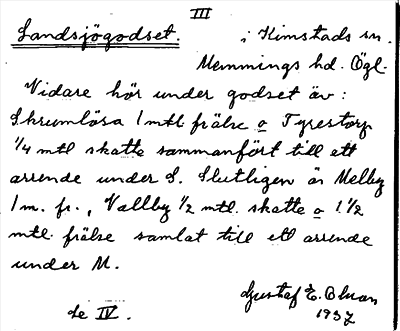 III
Landsjögodset. i Kimstads sn.
Memmings hd. Ögl.
Vidare hör under godset äv:
Skrumlösa 1 mtl frälse o Tyrestorp
1/4 mtl skatte sammanfört till ett
arrende under S. Slutligen är Melby
1 m. fr., Vallby 1/2 mtl. skatte o 1 1/2
mtl. frälse samlat till ett arrende
under M.
Gustaf E. Bluan
Se IV. 1937